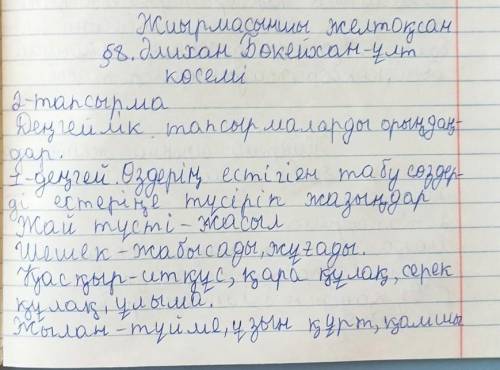 Жиырмасыншы желтоқсан
§8. Әлихан Бөкейхан-ұлт
көсемі
2-тапсырма
Деңгейлік тапсырмаларды орыңдаң-
дар.
1-деңгей Өздерің естігіен табу сөздер-
ді естеріңе түсіріп жазыңдар
Жай түсті - жасыл
Шешек - жабысады, жұғады.
Қасқыр-итқұс, қара құлақ, серек
құлақ, ұлыма.
Жылан - түйме, ұзын құрт, қамшы